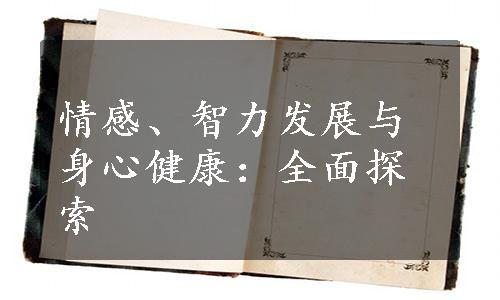 情感、智力发展与
身心健康：全面探
索